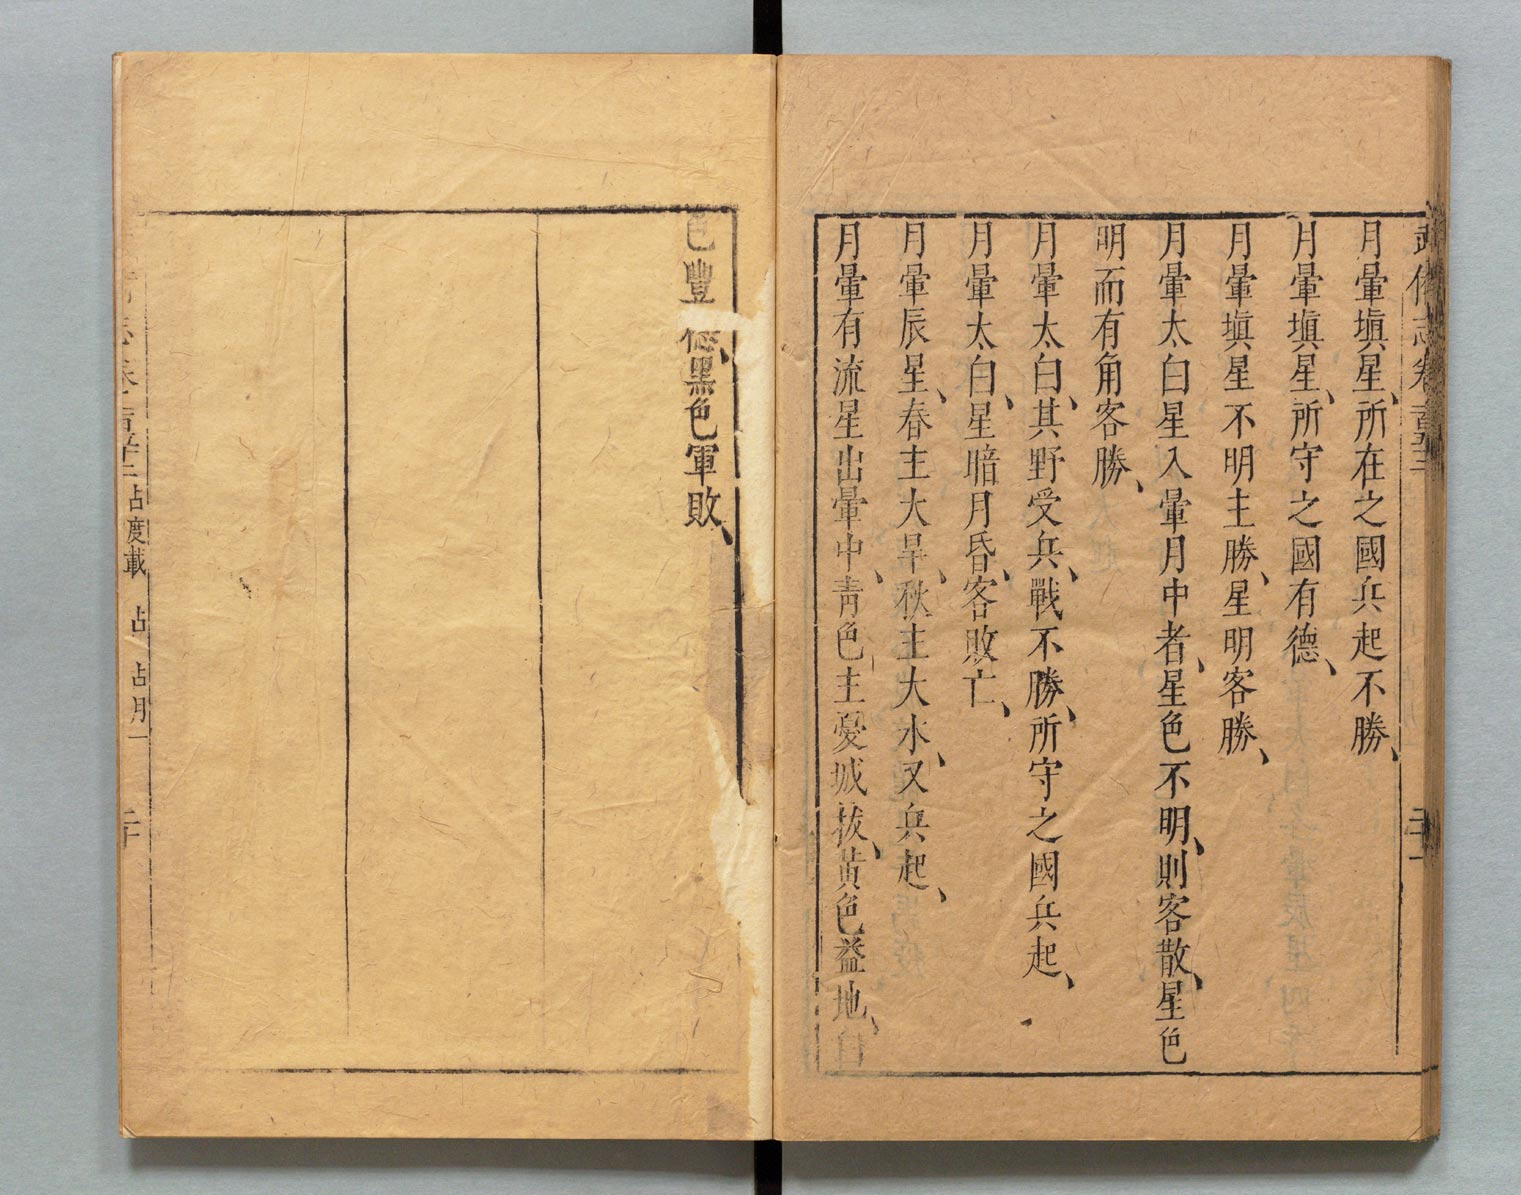 武備志卷
月暈塡星、所在之國兵起不勝、
月暈塡星、所守之國有德、
月暈塡星不明主勝、星明客勝、
月暈太白星入暈月中者、星色不明、則客散、星色
明而有角客勝、
月暈太白、其野受兵、戰不勝、所守之國兵起、
月暈太白、星暗月昏、客敗亡、
月暈辰星、春主大旱、秋主大水、又兵起、
月暈有流星出暈中、靑色主憂城拔、黃色益地、白
色豐德、黑色軍敗、
占度載 占 占月一
二十